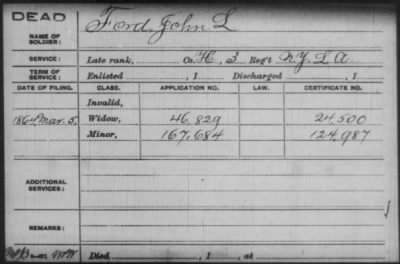 DEAD
NAME OF SOLDIER: Ford, John L
SERVICE: Late rank, Co. H, 3 Reg't N.Y. L. A.
TERM OF SERVICE: Enlisted , 1 Discharged , 1
DATE OF FILING. CLASS. APPLICATION NO. LAW. CERTIFICATE NO.
Invalid,
1864 Mar. 5. Widow, 46,829 24,500
Minor, 167,684 124,987
ADDITIONAL SERVICES:
REMARKS:
Died , 1 , at